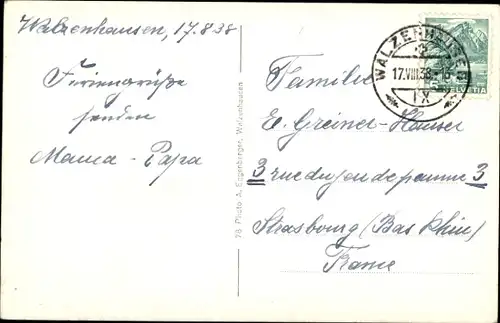 Walzenhausen, 17.8.38
Feriengrüße
senden
Mama - Papa
78 Photo A. Eggenberger, Walzenhausen
WALZENHAUSEN
17.VIII.38.
IX
HELVETIA
Familie
E. Greiner-Hauser
3 rue du jeu de paume 3
Strasbourg (Bas Rhin)
France